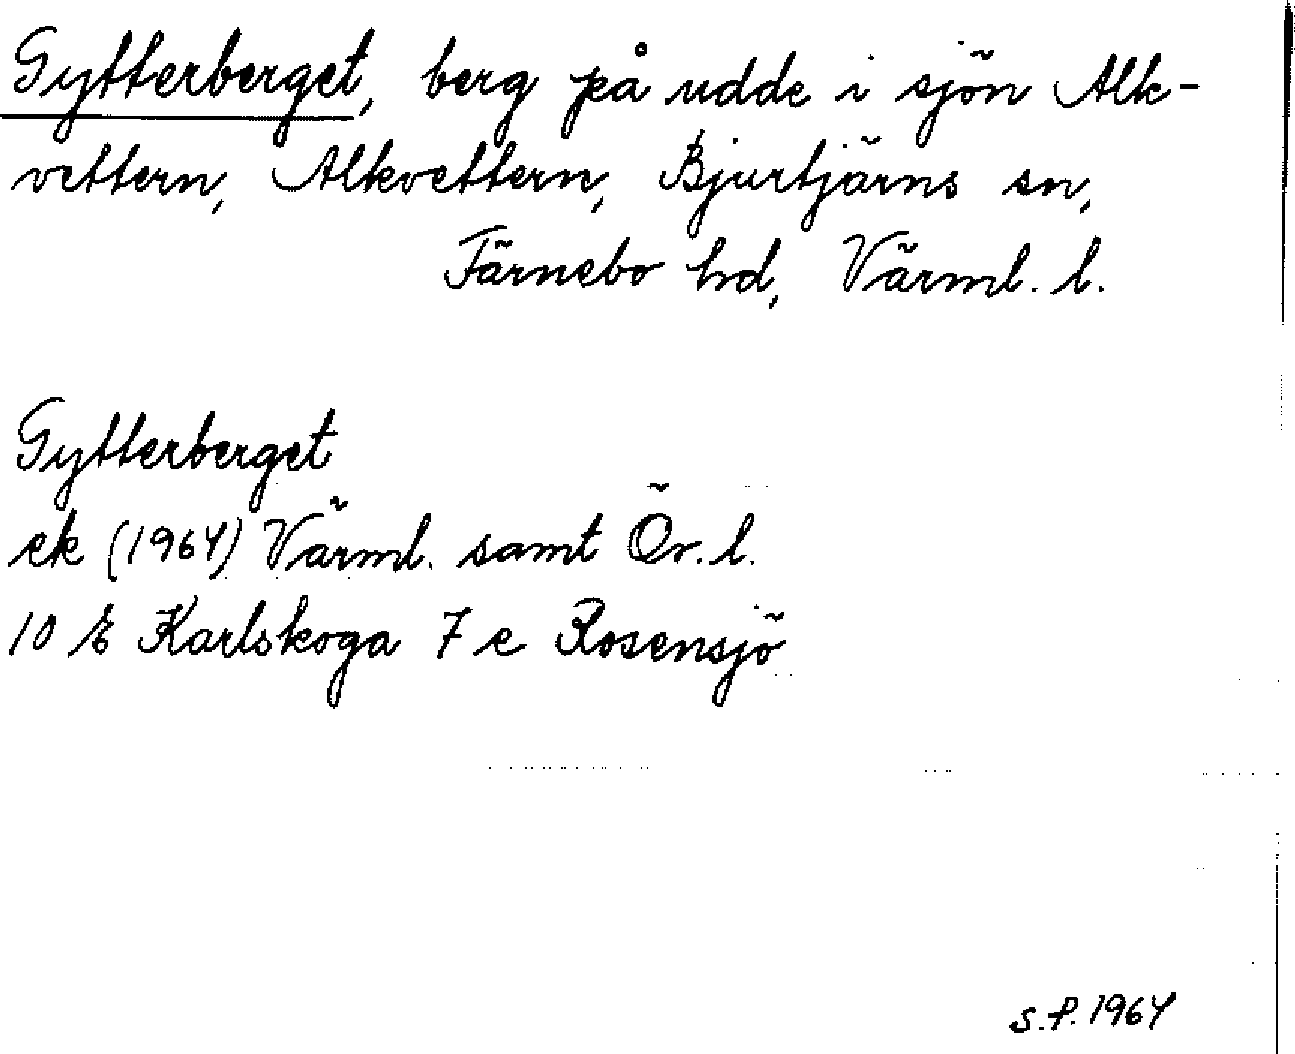 Gytterberget, berg på udde i sjön Alk-
vettern, Alkvettern, Bjurtjärns sn,
Färnebo hd, Värml. l.
Gytterberget
ek (1964) Värml. samt Ör. l.
10 E Karlskoga 7 e Rosensjö
S.P. 1964